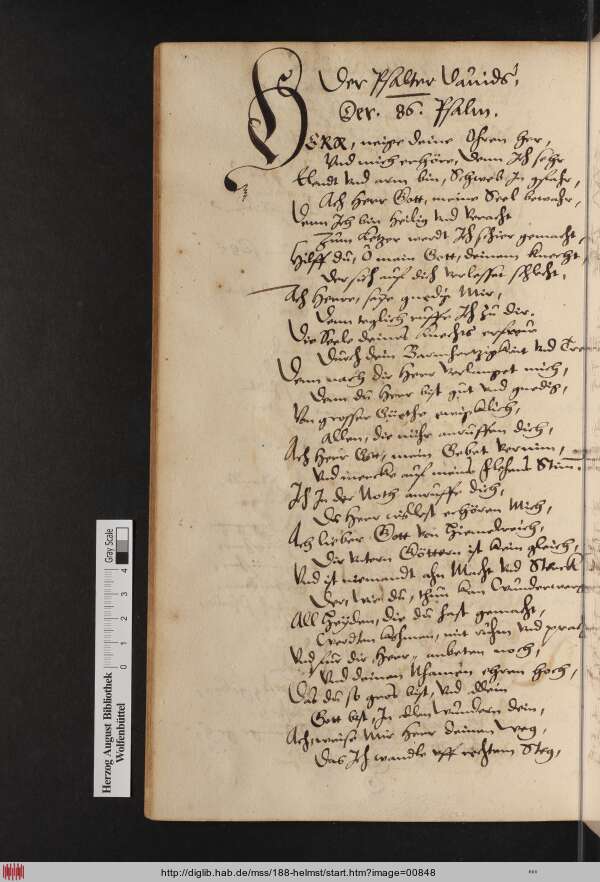 Der Psalter Dauids,
Der. 86. Psalm.
HERR, neige deine Ohren her,
Vnd mich erhöre, denn Ich sehr
Elendt vnd arm bin, Schweb In gefahr,
Ach Herr Gott, meine Seel bewahr,
Denn Ich bin heilig vnd veracht
Zum Ketzer werdt Ich schier gemacht,
Hilff du, O mein Gott, deinem knecht
Der sich auf dich verlesset schlecht,
Ach Herre, seÿe gnedig Mir,
Denn teglich ruffe Ich zu dir.
Die Seele deines knechts erfreue
Durch dein Barmhertzigkeit vnd
Denn nach dir Herr verlanget mich,
Denn du Herr bist gut vnd gnedig,
Von grosser Guethe
Allen, die anruffen dich,
Ach Herr Gott, mein Gebet vernim,
Vnd mercke auf meines flehens Stim.
Ich In der Noth anruffe dich,
Du Herr erhören Mich,
Ach lieber Gott von Himmelreich,
Dir vntern Göttern ist kein gleich,
Vnd ist niemandt ahn Macht vnd Sterck
Der, wie du, thun kan
All Heÿden, die du hast gemacht,
Werdten kohmen, mit ruhm vnd
Vnd fur dir Herr, anbeten noch,
Vnd deinen Nhamen ehren hoch,
Das du so gros bist, vnd allein
Gott bist, In allen wundern dein,
Ach, weise Mir Herr deinen Weg,
Das Ich wandle vff rechtem Steg,
Gray Scale
0 1 2 3 4
Herzog August Bibliothek
Wolfenbüttel
http://diglib.hab.de/mss/188-helmst/start.htm?image=00848